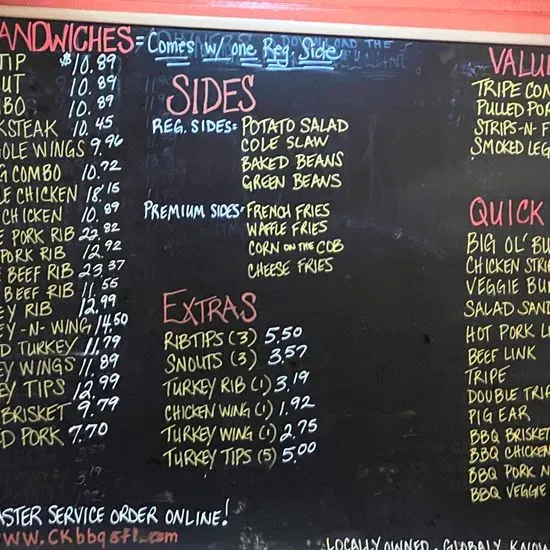 ANDWICHES = Comes w/ one Reg. Side
TIP $10.89
UT 10.89
BO 10.89
KSTEAK 10.45
OLE WINGS 9.96
G COMBO 10.72
LE CHICKEN 18.15
CHICKEN 10.89
E PORK RIB 22.82
PORK RIB 12.92
E BEEF RIB 23.37
BEEF RIB 11.55
EY RIB 12.99
EY -N- WING 14.50
D TURKEY 11.79
EY WINGS 11.89
EY TIPS 12.99
BRISKET 9.79
ED PORK 7.70
ASTER SERVICE ORDER ONLINE!
www.CKbbqstl.com
SIDES
REG. SIDES = POTATO SALAD
COLE SLAW
BAKED BEANS
GREEN BEANS
PREMIUM SIDES = FRENCH FRIES
WAFFLE FRIES
CORN ON THE COB
CHEESE FRIES
EXTRAS
RIBTIPS (3) 5.50
SNOUTS (3) 3.57
TURKEY RIB (1) 3.19
CHICKEN WING (1) 1.92
TURKEY WING (1) 2.75
TURKEY TIPS (5) 5.00
VALU
TRIPE COM
PULLED POR
STRIPS-N-F
SMOKED LEG
QUICK
BIG OL' BU
CHICKEN STRI
VEGGIE BU
SALAD SAND
HOT PORK L
BEEF LINK
TRIPE
DOUBLE TRIP
PIG EAR
BBQ BRISKET
BBQ CHICKEN
BBQ PORK N
BBQ VEGGIE
LOCALLY OWNED, GLOBALY KNOW